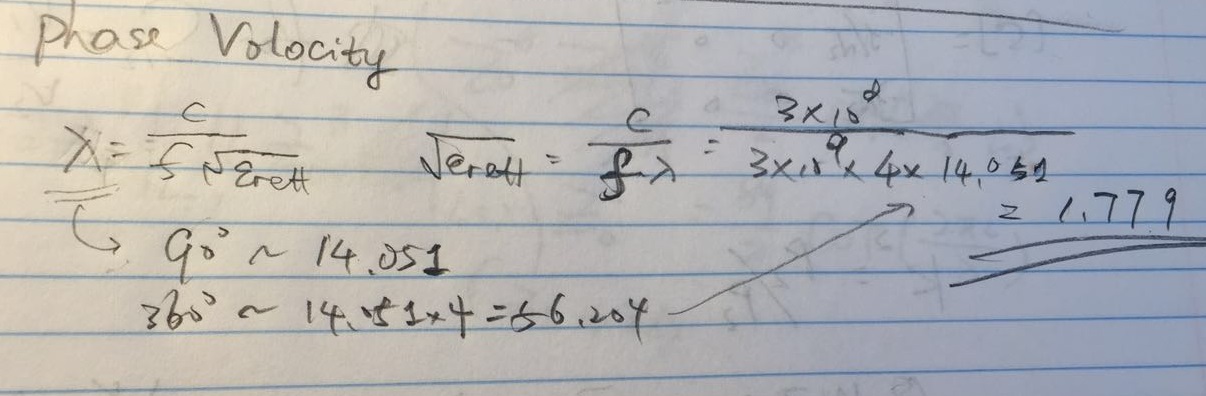 Phase Volocity
λ = c / f √εreff    √εreff = c / f λ = 3×10^8 / 3×10^9 × 4 × 14.051
= 1.779
90° ~ 14.051
360° ~ 14.051×4 = 56.204